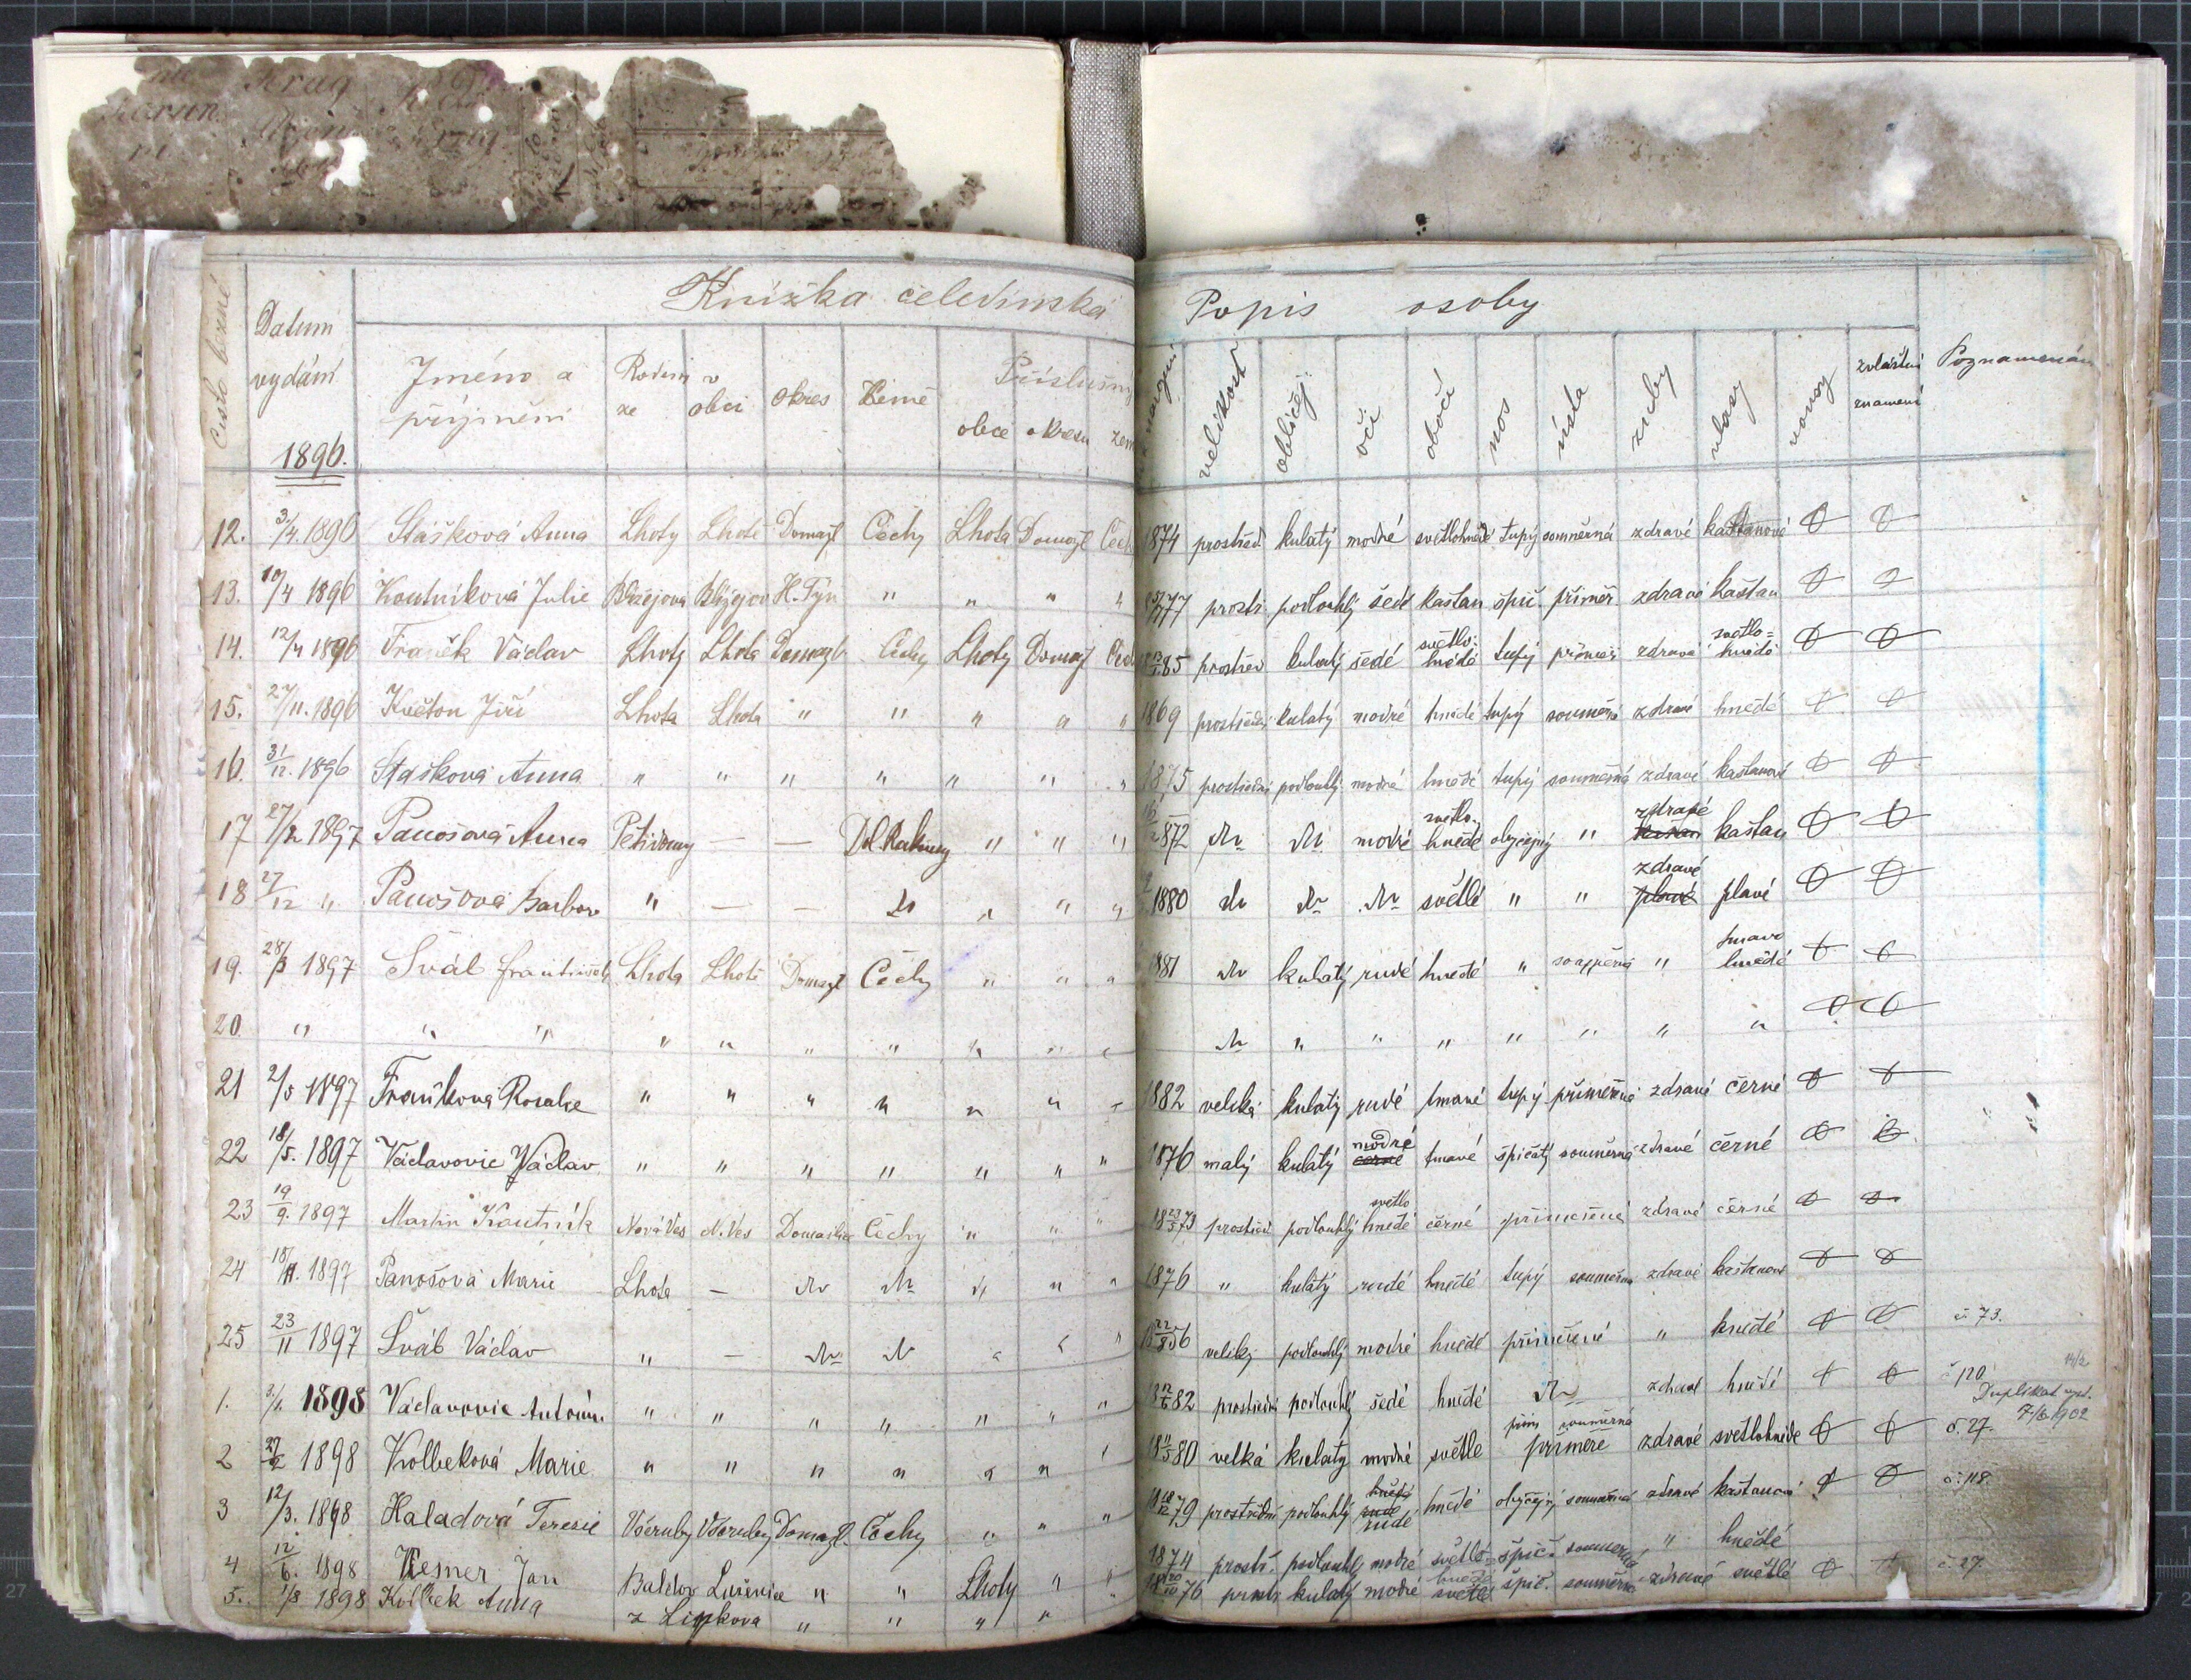 Knížka čeledínská
Popis osoby
Číslo běžné
Datum vydání
1896.
Jméno a příjmění
Rodem ze
v obci
Okres
Země
Příslušný
obce
okresu
zem
velikost
obličej
oči
obočí
nos
ústa
zuby
vlasy
vousy
zvláštní znamení
Poznamenán
12. 3/4 1896 Stášková Anna Lhoty Lhotě Domažl Čechy Lhota Domažl Čech 1874 prostřed kulatý modré světlohnědé tupý souměrná zdravé kaštanové
13. 10/4 1896 Koutníková Julie Blížejova Blížejov H. Týn " " " " 77 prostř podlouhlý šedé kaštan špič. příměř zdravé kaštan
14. 12/4 1896 Franěk Václav Lhoty Lhota Domažl Čechy Lhoty Domažl Čech 85 prostřed kulatý šedé světlo-hnědé tupý příměř zdravé světlo=hnědé
15. 27/11. 1896 Květon Jiří Lhota Lhota " " " " " 1869 prostřední kulatý modré hnědé tupý souměrná zdravé hnědé
16. 31/12. 1896 Stašková Anna " " " " " " " 1875 prostřední podlouhlý modré hnědé tupý souměrná zdravé kaštanové
17 27/2 1897 Panošová Anna — — Dol Rakousy " " " 1872 modré světlo-hnědé obyčejný " zdravé kaštan
18 27/12 " Panošová Barbor " — — " " " 1880 světlé " " zdravé plavé plavé
19. 28/3 1897 Sváb František Lhota Lhotě Domažl Čechy " " " 1881 kulatý rudé hnědé " souměrná " tmavo hnědé
20. " " " " " " " " " " " " " " " " " "
21 2/5 1897 Fraňková Rosalie " " " " " " " 1882 veliká kulatý rudé tmavé tupý příměřná zdravé černé
22 18/5. 1897 Václavovic Václav " " " " " " " 1876 malý kulatý modré černé tmavé špičatý souměrná zdravé černé
23 19/9. 1897 Martin Koutník Nová Ves N. Ves Domažlice Čechy " " " 1873 prostřed podlouhlý světlo hnědé černé příměřené zdravé černé
24 18/11. 1897 Panošová Marie Lhota — " " " 1876 " kulatý rudé hnědé tupý souměrná zdravé kaštanové
25 23/11 1897 Šváb Václav " — " " " 1856 veliký podlouhlý modré hnědé příměřené " hnědé č 73.
1. 3/1. 1898 Václavovic Antonín " " " " " " " 1882 prostřední podlouhlý šedé hnědé zdravé hnědé č 120
Duplikat vyd. 7/6 1902
2 27/2 1898 Kolbeková Marie " " " " " " " 1880 velká kulatý modré světlé souměrná příměře zdravé světlohnědé č. 27.
3 12/3. 1898 Haladová Teresie Všeruby Všeruby Domažl. Čechy " " " 1879 prostřední podlouhlý hnědé rudé rudé hnědé obyčejný souměrná zdravé kaštanové č. 118
4 12/6. 1898 Wesner Jan " " Lhoty " " 1874 prostř. podlouhlý modré světlo=hnědé špič. souměrná " hnědé
5. 1/8 1898 Kolbek Anna z Lipkova " " " " 1876 prostř kulatý modré světlé špič. souměrná zdravé světlé č 27.